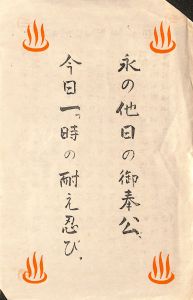 永の他日の御奉公、
今日一時の耐え忍び。